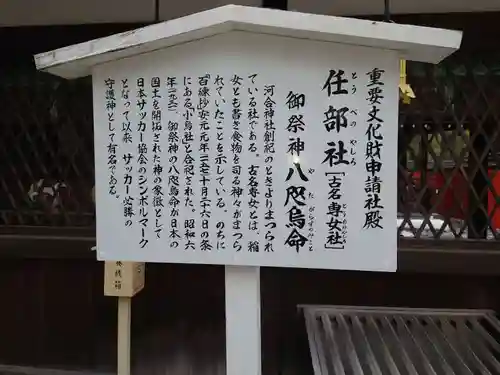 重要文化財申請社殿
任部社［古名専女社］
とうべのやしろ
とうめのやしろ
御祭神 八咫烏命
やたがらすのみこと
河合神社創祀のときよりまつられ
ている社である。古名専女とは、稲
女とも書き食物を司る神々がまつら
れていたことを示している。のちに
『百練抄』安元元年（一一七五）十月二十六日の条
にある「小烏社」と合祀された。昭和六
年（一九三一）、御祭神の八咫烏命が日本の
国土を開拓された神の象徴として
日本サッカー協会のシンボルマーク
となって以来　サッカー必勝の
守護神として有名である。